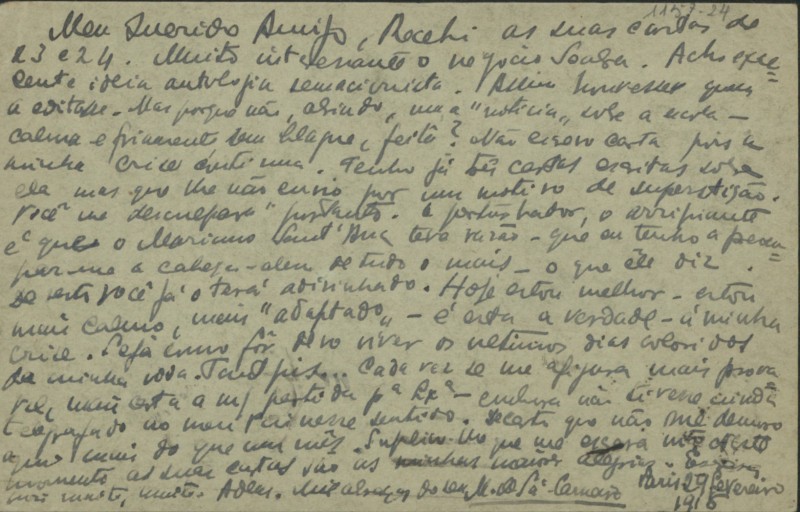 1157-24
Meu Querido Amigo, Recebi as suas cartas de
23 e 24. Muito interessante o negocio Sousa. Acho exce-
lente ideia antologia sensacionista. Assim houvesse quem
a editasse. Mas porque não, abrindo, uma "noticia" sobre a escola —
calma e friamente sem blague, feita? Não escrevo carta pois a
minha crise continua. Tenho já três cartas escritas sobre
ela mas que lhe não envio por um motivo de superstição.
Você me desculpará portanto. O perturbador, o arripiante
é que o Mariano Sant'Ana teve razão — que eu tenho a
a cabeça — alem de tudo o mais — o que êle diz.
De resto você já o terá adivinhado. Hoje estou melhor — estou
mais calmo, mais "adaptado" — é esta a verdade — á minha
crise. Seja como fôr devo viver os ultimos dias coloridos
da minha vida. Tant pis... Cada vez se me afigura mais prova-
vel, mais certa a mª partida pª Lxª — embora não tivesse ainda
telegrafado ao meu Pai nesse sentido. Decerto que não me demoro
aqui mais do que um mês. Suplico-lhe que me escreva
momento as suas cartas são as maiores alegrias.
muito, muito. Adeus. Mil abraços do seu M. de Sá-Carneiro
Paris 29 Fevereiro
1916